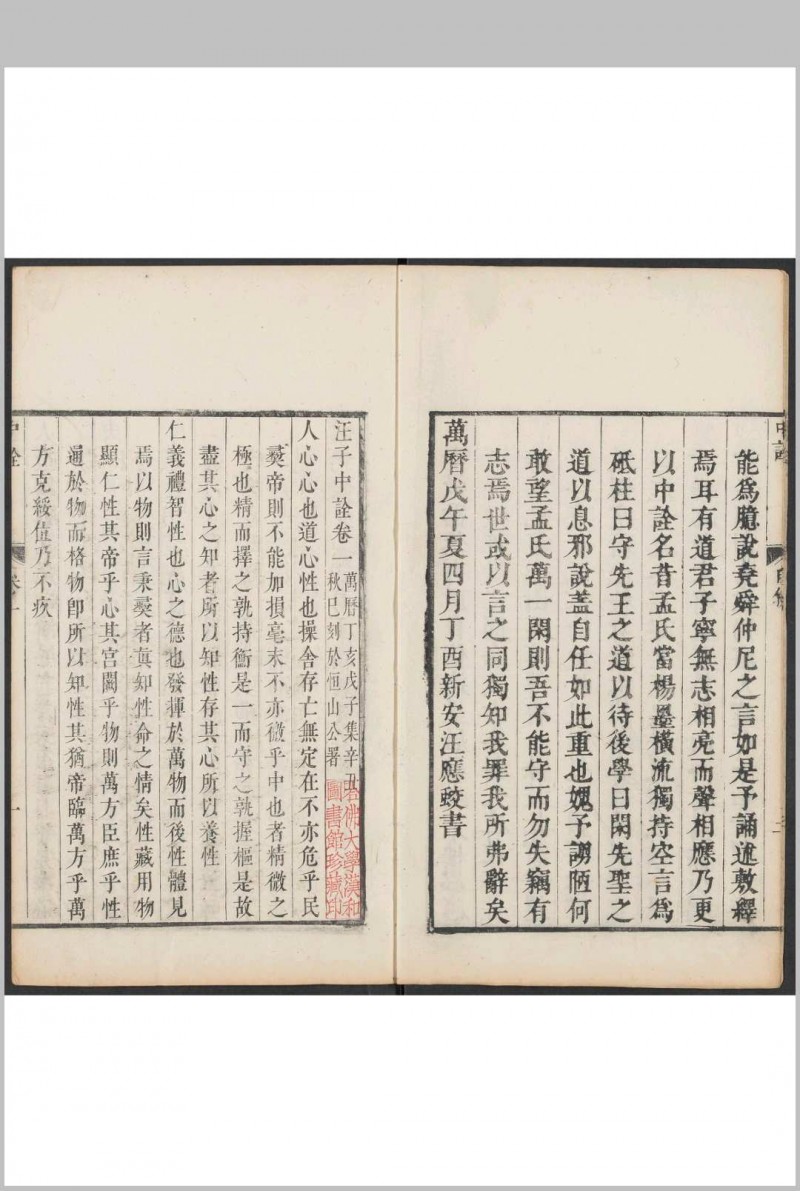 能為臆說堯舜仲尼之言如是予誦述敷釋
焉耳有道君子寧無志相亮而聲相應乃更
以中詮名昔孟氏當楊墨橫流獨持空言為
砥柱曰守先王之道以待後學曰閑先聖之
道以息邪說蓋自任如此重也媿予謭陋何
敢望孟氏萬一閑則吾不能守而勿失竊有
志焉世或以言之同獨知我罪我所弗辭矣
萬曆戊午夏四月丁酉新安汪應蛟書
汪子中詮卷一
萬曆丁亥戊子集辛丑
秋巳刻於恒山公署
人心心也道心性也操舍存亡無定在不亦危乎民
彝帝則不能加損毫末不亦微乎中也者精微之
極也精而擇之孰持衡是一而守之孰握樞是故
盡其心之知者所以知性存其心所以養性
仁義禮智性也心之德也發揮於萬物而後性體見
焉以物則言秉彝者真知性命之情矣性藏用物
顯仁性其帝乎心其宮闕乎物則萬方臣庶乎性
通於物而格物卽所以知性其猶帝臨萬方乎萬
方克綏位乃不疚
中詮
卷一
一
佛大學漢和
圖書館珍藏印